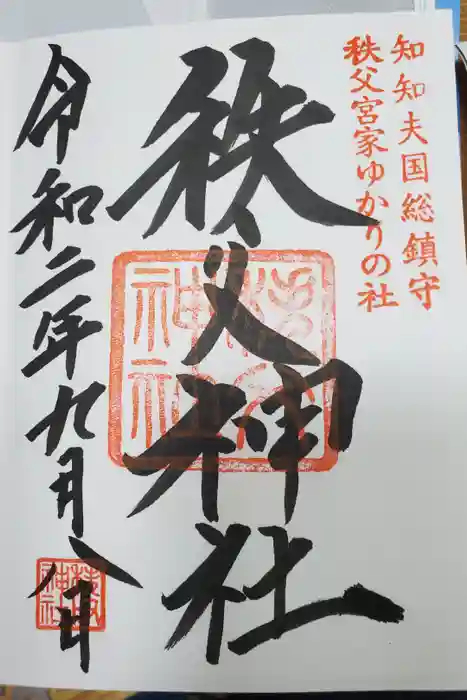 知知夫国総鎮守
秩父宮家ゆかりの社
秩父神社
令和二年九月八日
秩父神社